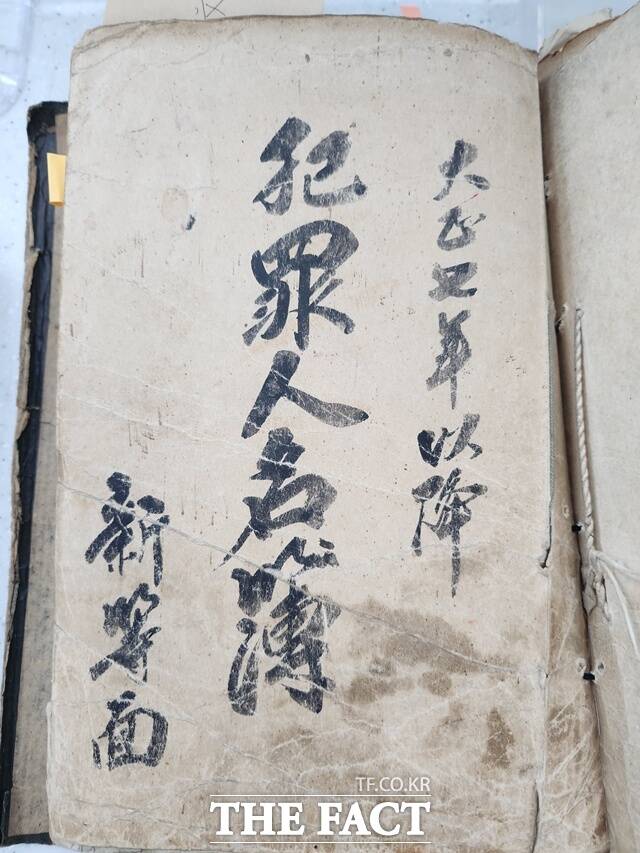 大正四年以降
犯罪人名簿
新等面
TF.CO.KR
THE FACT